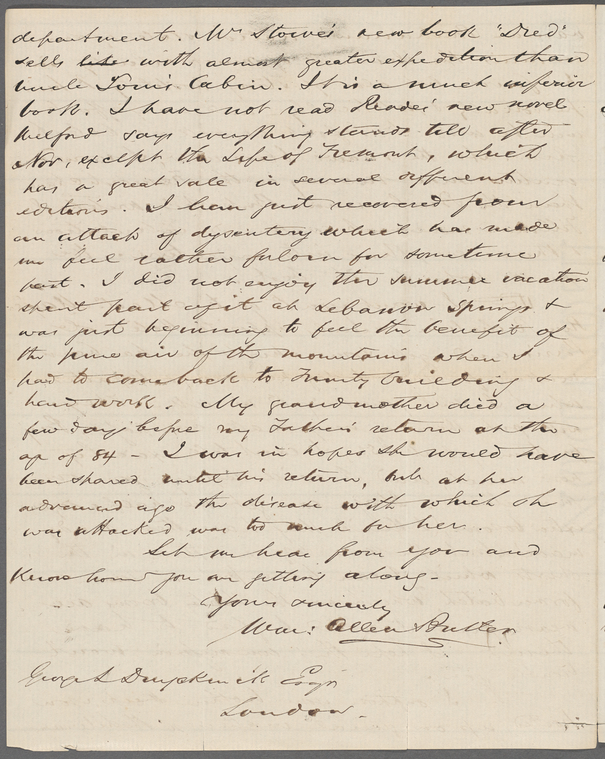 department. Mrs Stowe's new book "Dred"
sells like with almost greater expedition than
uncle Tom's Cabin. It is a much inferior
book. I have not read Reade's new novel
says everything stands till after
Nov, except the Life of Fremont, which
has a great sale in several different
editions. I have just recovered from
an attack of dysentery which has made
me feel rather forlorn for sometime
past. I did not enjoy the summer vacation
spent part of it at Lebanon Springs &
was just beginning to feel the benefit of
the pure air of the mountains when I
had to come back to Trinity building &
hard work. My grandmother died a
few days before my Father's return at the
age of 84 - I was in hopes she would have
been spared until his return, but at her
advanced age the disease with which she
was attacked was too much for her.
Let me hear from you and
Know how you are getting along -
Yours sincerely
Wm: Allen Butler
George L Duyckinck Esqr
London.